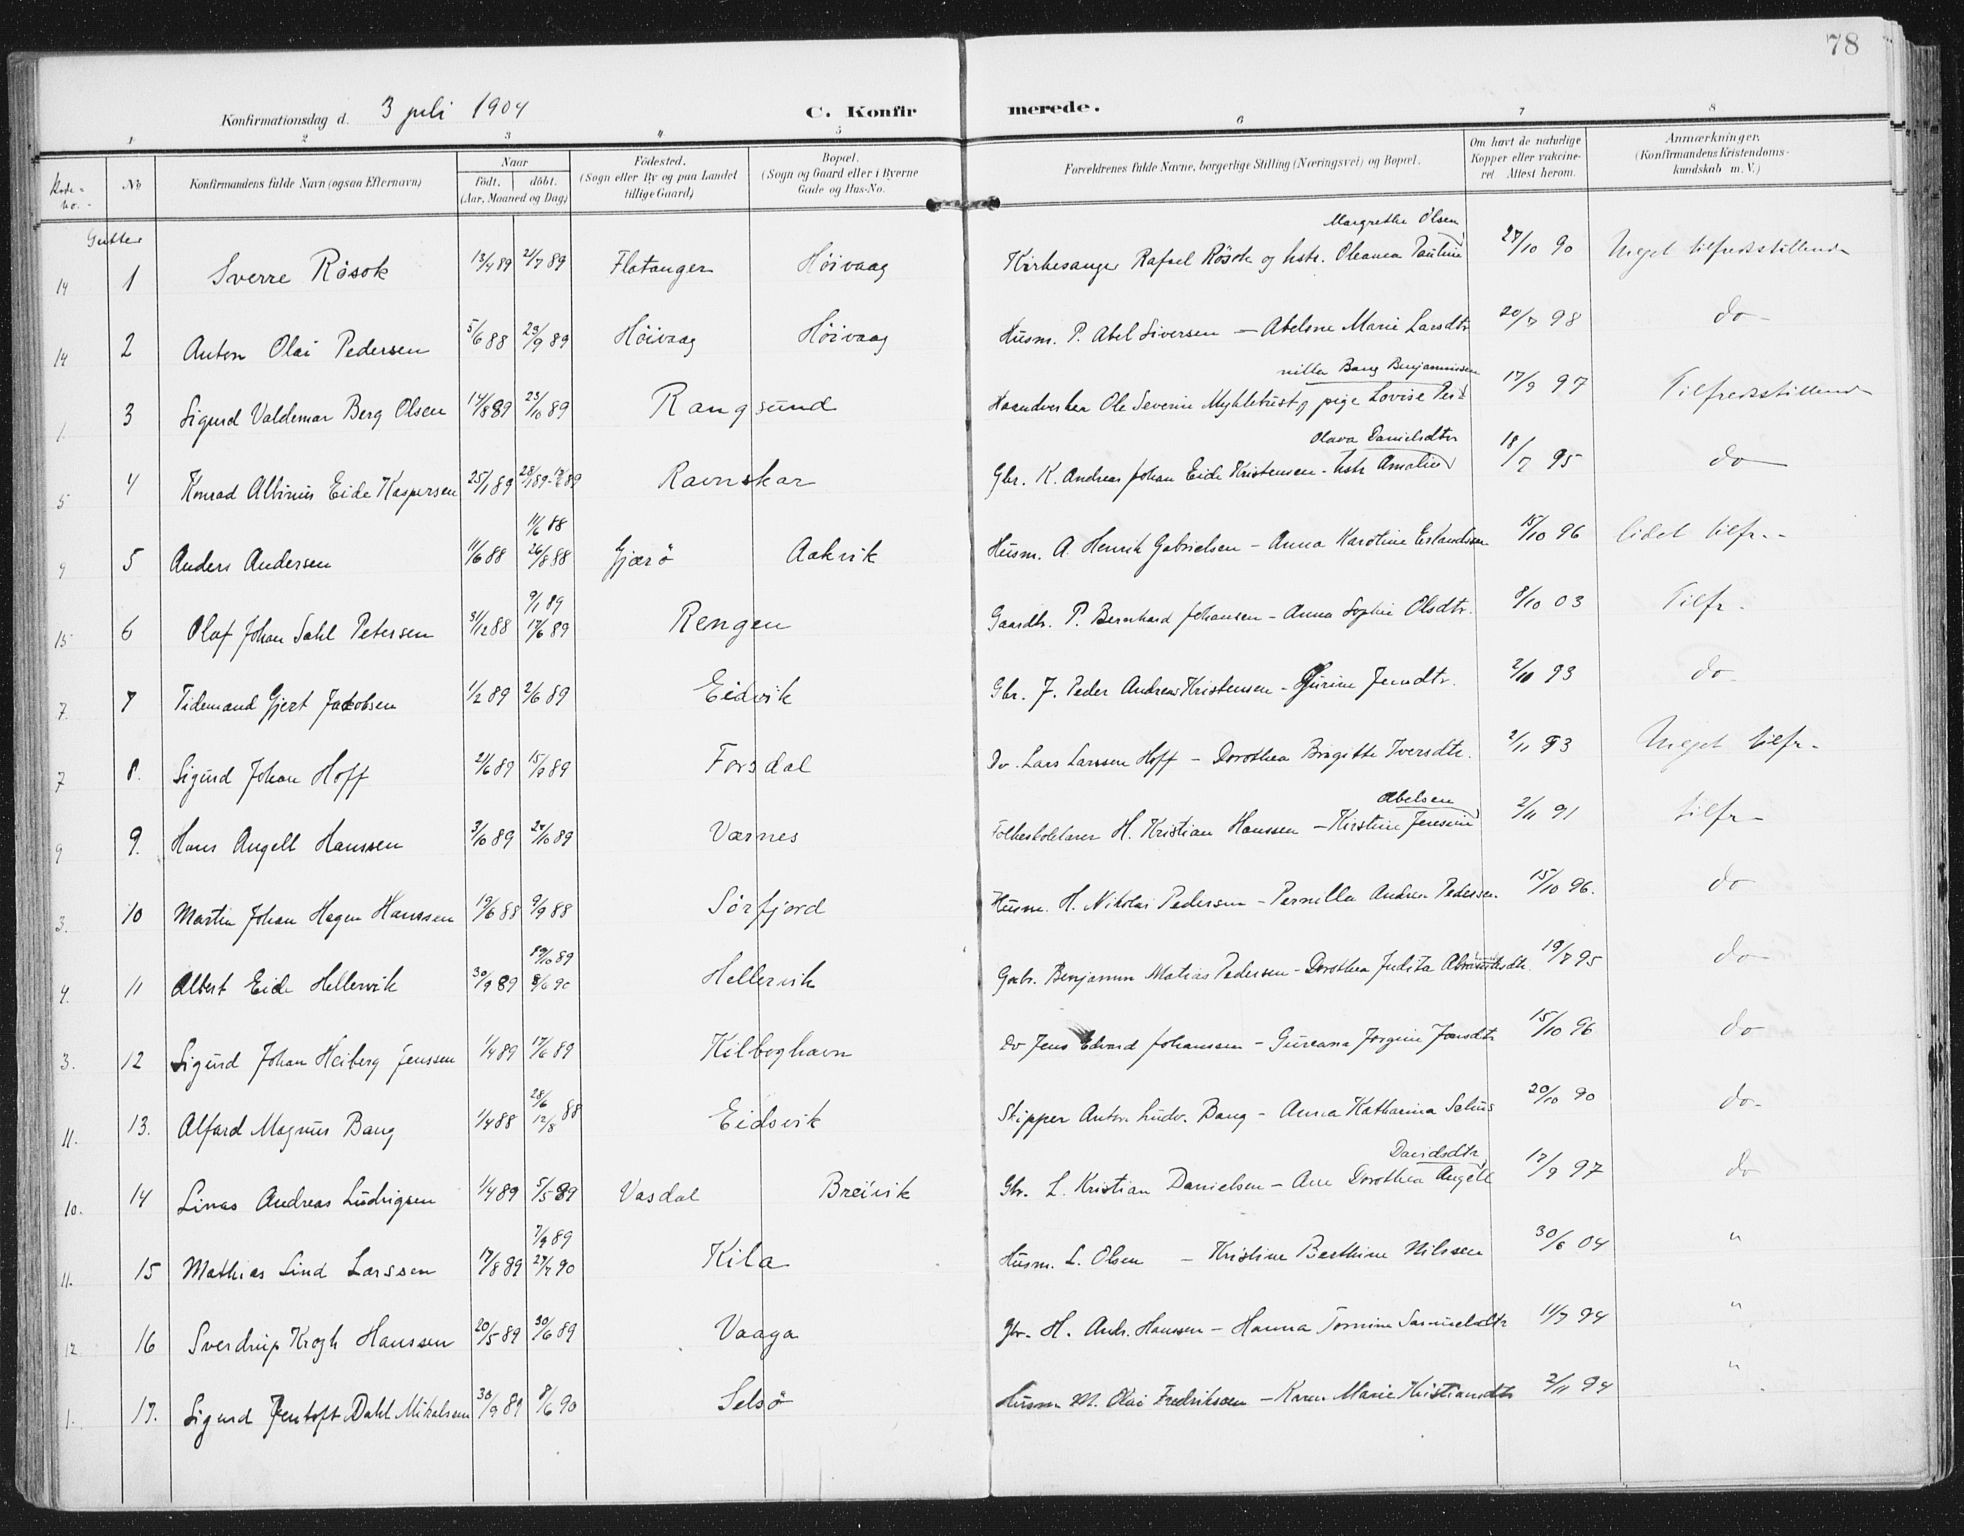 78
Konfirmationsdag d. 3 juli 1904 C. Konfir merede.
1 2 3 4 5 6 7 8
No Konfirmandens fulde Navn (ogsaa Efternavn) Naar født. døbt. (Aar, Maaned og Dag) Fødested. (Sogn eller By og paa Landet tillige Gaard) Bopæl. (Sogn og Gaard eller i Byerne Gade og Hus-No. Forældrenes fulde Navne, borgerlige Stilling (Næringsvei) og Bopæl. Om havt de naturlige Kopper eller vakcineret Attest herom. Anmærkninger. (Konfirmandens Kristendomskundskab m. V.)
Gutter
Margrethe Olsen
14 1 Sverre Røsok 13/4 89 21/7 89 Flatanger Høivaag Kirkesanger Rafael Røsok og hstr. Oleanea Pauline 27/10 90 Meget tilfredsstillende
14 2 Anton Olai Pedersen 5/6 88 29/9 89 Höivaag Høivaag Husm. P. Abel Siversen - Abelone Marie Larsdtr 20/7 98 do
nilla Bang Benjaminsen
1. 3 Sigurd Valdemar Berg Olsen 14/8 89 23/10 89 Rangsund Haandverker Ole Severin Myhletust og pige Lovise Per 17/9 97 Tilfredsstillende
Olava Danielsdtr
5 4 Konrad Albinus Eide Kaspersen 25/1 89 Ravnskar Gbr. K. Andreas Johan Eide Kristensen - hstr Amalie 18/7 95 do
11/6 88
9 5 Anders Andersen 11/6 88 26/8 88 Gjærø Aakvik Husm. A. Henrik Gabrielsen - Anna Karoline Erlandsen 15/10 96 lidet tilfr.
9/1 89
15 6 Olaf Johan Sahl Petersen 31/12 88 17/6 89 Rengen Gaardbr. P. Bernhard Johansen - Anna Sophie Olsdtr. 8/10 03 Tilfr.
7. 7 Tidemand Gjert Jakobsen 1/2 89 2/6 89 Eidvik Gbr. J. Peder Andreas Kristensen - Gjurine Jensdtr. 2/11 93 do
7 8. Sigurd Johan Hoff 2/6 89 15/9 89 Forsdal Do. Lars Larssen Hoff - Dorothea Brigitte Iversdtr. 2/11 93 Meget tilfr.
Abelsen
9 9. Hans Angell Hanssen 3/10 89 27/10 89 Værnes Folkeskolelærer H. Kristian Hanssen - Kirstine Jensine 2/11 91 tilfr.
3. 10 Martin Johan Hagen Hanssen 19/6 88 9/9 88 Sørfjord Husm. H. Nikolai Pedersen - Pernilla Andrea Pedersen 15/10 96. do
19/10 89
4. 11 Albert Eide Hellervik 30/9 89 8/6 90 Hellervik Gbr. Benjamin Matias Pedersen - Dorothea Judita 19/7 95 do
3. 12 Sigurd Johan Heiberg Jenssen 1/4 89 17/6 89 Kilboghavn Do Jens Edvard Johanssen - Gureana Jorgine Jonsdtr 15/10 96 do
28/6
11. 13. Alfard Magnus Bang 1/4 88 12/8 88 Eidsvik Skipper Anton Ludv. Bang - Anna Katharina Solius 20/10 90 do
Davidsdtr
10. 14 Linas Andreas Ludvigsen 1/4 89 5/5 89 Vasdal Breivik Gbr. L. Kristian Danielsen - Ane Dorothea Angell 17/9 97 do
7/9 89
11. 15 Mathias Lind Larssen 17/8 89 27/7 90 Kila Husm. L. Olsen - Kristine Berthine Nilssen 30/6 04 "
12 16 Sverdrup Krogh Hanssen 20/5 89 30/6 89 Vaaga Gbr. H. Andr. Hanssen - Hanna Tomine Samuelsdtr 11/7 94 "
1. 17. Sigurd Jentoft Dahl Mikalsen 30/9 89 8/6 90 Selsö Husm M. Olai Fredriksen - Karen Marie Kristiansdtr 2/11 94 "